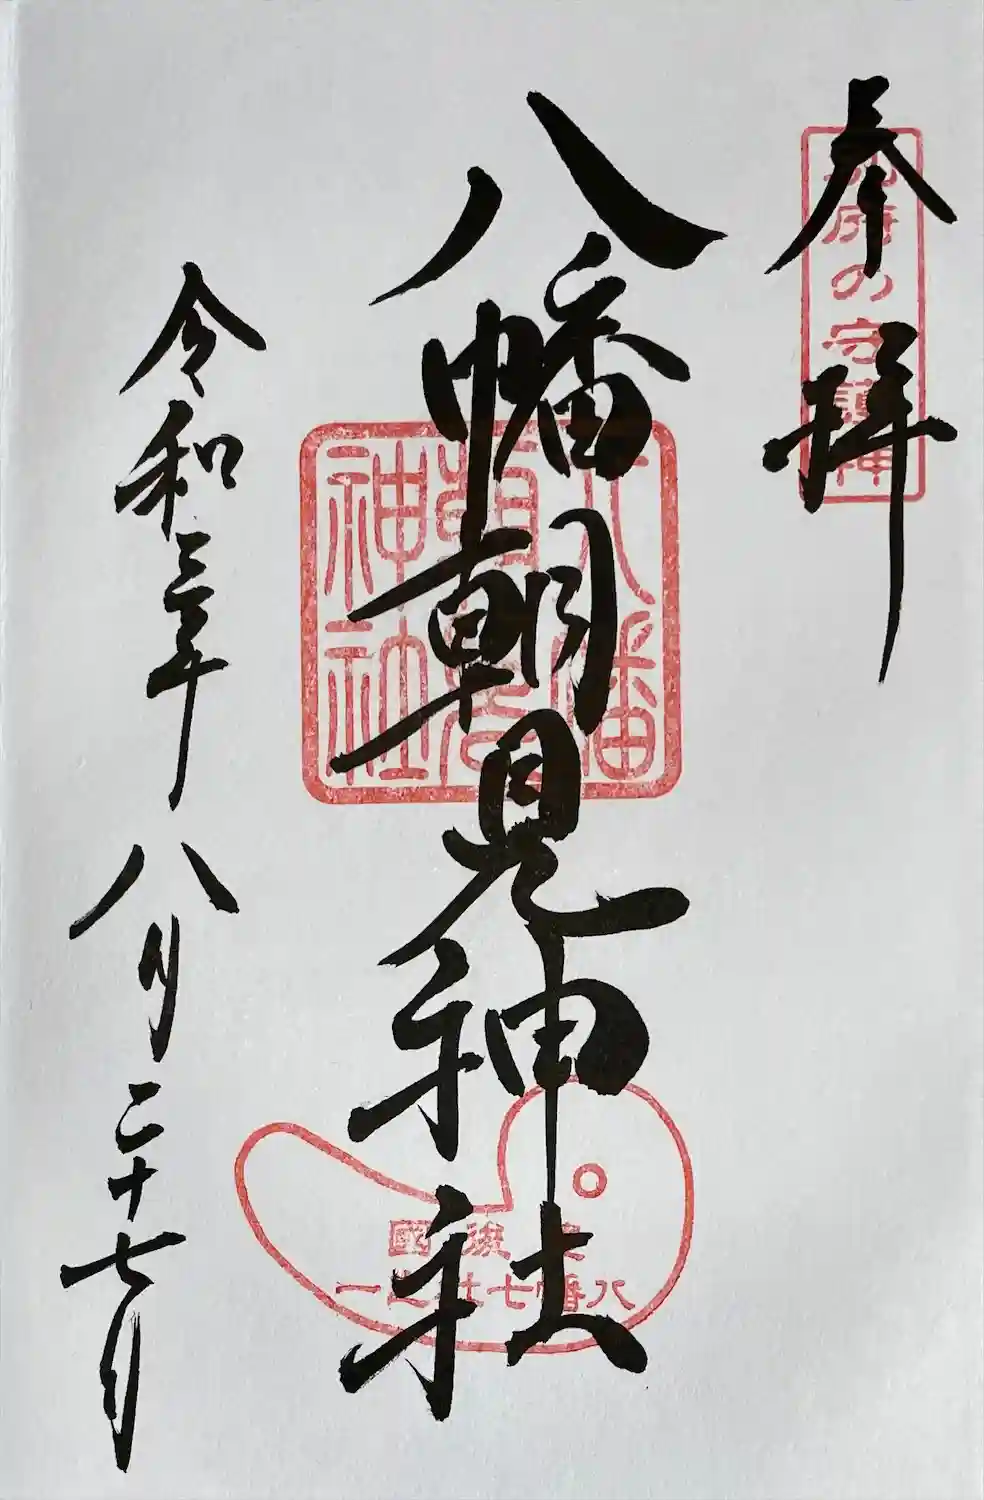 奉拝
別府の守護神
八幡朝見神社
八幡朝見神社
豊後國
八幡七社之一
令和三年八月二十七日